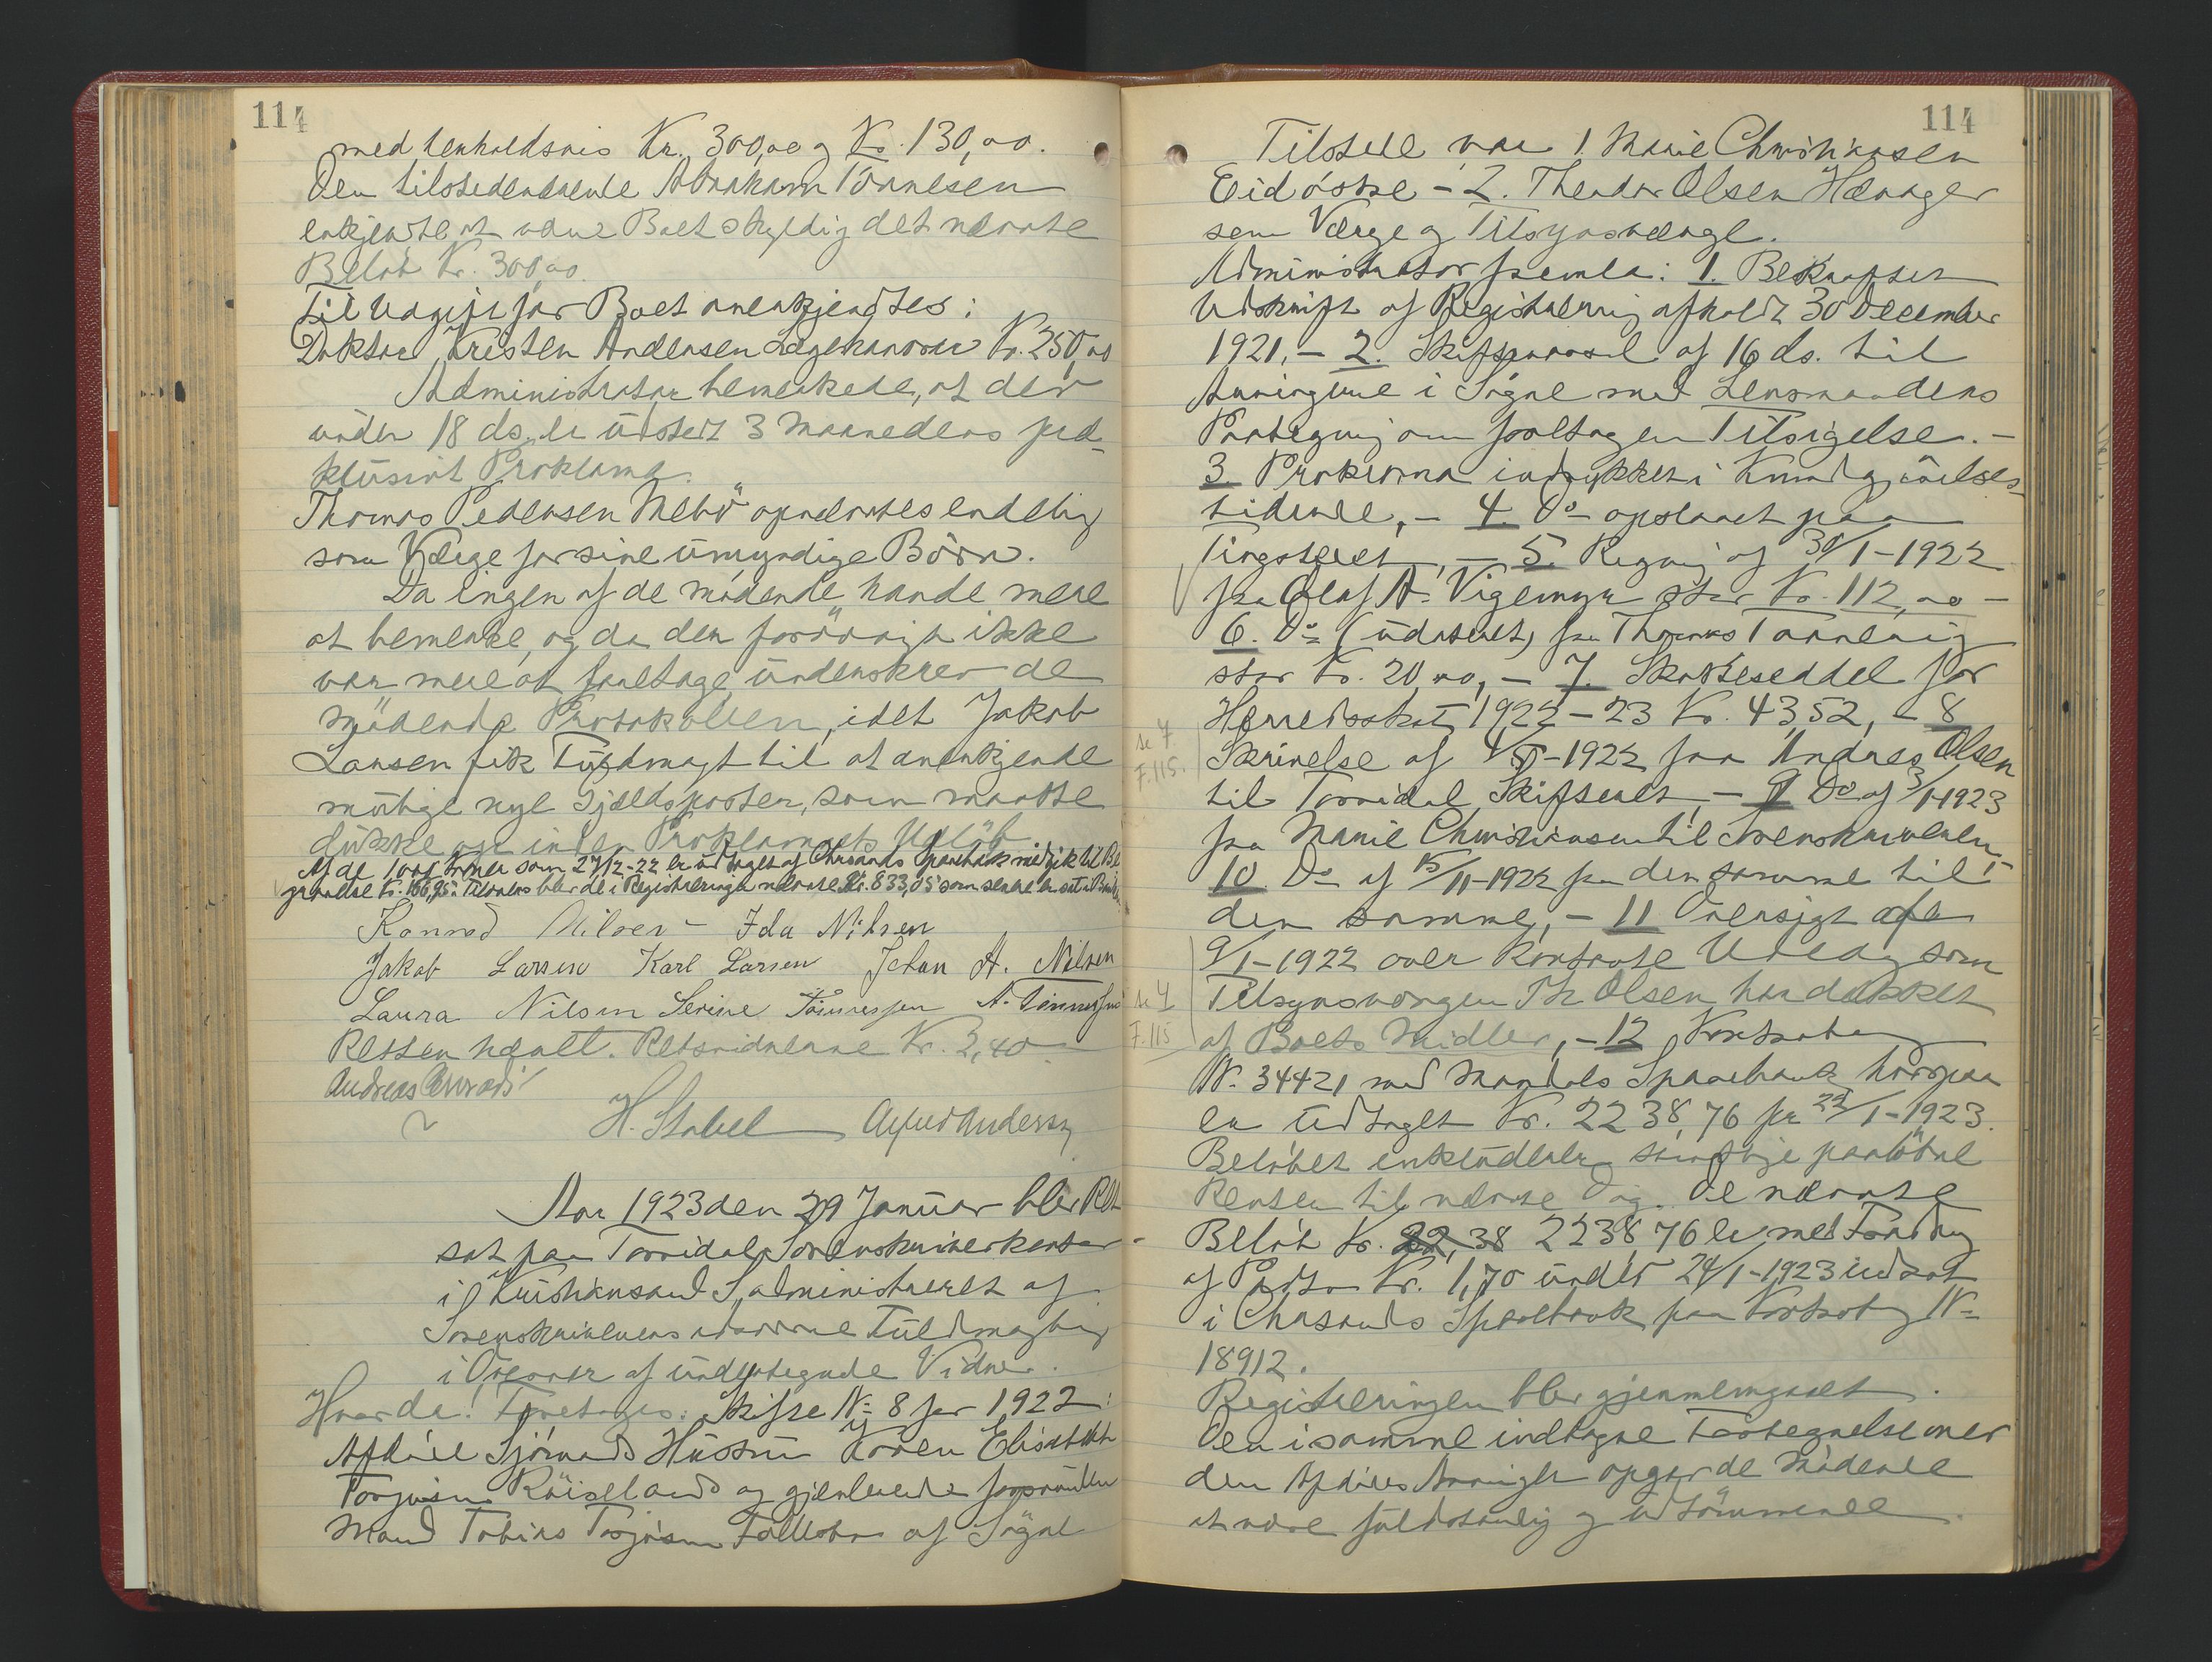 114
med henholdsvis Kr. 300,00 og Kr. 130,00.
Den tilstedeværende Abraham Tönnesen
erkjendte at være Boet skyldig det nævnte
Belöb Kr. 300,00.
Til Udgift for Boet anerkjendtes:
Doktor Kristen Andersen Lægehonorar Kr. 250,00
Administrator bemerkede, at der
under 18 ds. er udstedt 3 Maaneders præ-
klusivt Proklama.
Thomas Pedersen Nebö opnævntes endelig
som Værge for sine umyndige Börn.
Da ingen af de mödende havde mere
at bemerke, og da der forövrigt ikke
var mere at foretage underskrev de
mödende Protokollen, idet Jakob
Larsen fik Fuldmagt til at anerkjende
mulige nye Gjeldsposter, som maatte
dukke op inden Proklamaets Udlöb.
Af de 1000 Kroner som 27/12-22 er udtaget af Chrsands Sparebank medgik til Be-
gravelse Kr. 166,95. Tilovers blev de i Registreringen nævnte Kr. 833,05 som senere er sat i Bank
Konrad Nilsen - Ida Nilsen
Jakob Larsen Karl Larsen Johan A. Nilsen
Laura Nilsen Serine Tönnessen A. Tönnessen
Retten hævet. Retsvidnerne Kr. 2,40
Andreas
H. Stabel Alfred Andersen
Aar 1923 den 29 Januar blev Ret
sat paa Torridal Sorenskriverkontor
i Kristiansand S, administreret af
Sorenskriverens edsvorne Fuldmægtig
i Overvær af undertegnede Vidner.
Hvorda: Foretages: Skifte No 8 for 1922:
Afdöde Gjörmunds Hustru Karen Elisabeth
Torjusen Röiseland og gjenlevende forsvundne
Mand Tobias Torjusen Fallebo af Sögne
114
Tilstede var 1. Marie Christiansen
Eidöstre - 2. Theodor Olsen Hævager
som Værge og Tilsynsværge.
Administrator fremla: 1. Bekræftet
Udskrift af Registrering afholdt 30 December
1921, - 2. Skiftevarsel af 16 ds. til
Arvingerne i Sögne med Lensmandens
Paategning om foretagen Tilsigelse. -
3 Proklama indrykket i Kundgjörelses-
tidende, - 4. Do opslaaet paa
Tingstedet, - 5. Regning af 30/1-1922
fra Olaf A. Vigemyr stor Kr. 112,00 -
6. Do (udateret) fra Thomas
stor Kr. 20,00, - 7. Skatteseddel for
Herredsskat 1922-23 Kr. 43,52, - 8
se 4
F. 115.
Skrivelse af 4/5-1922 fra Andreas Olsen
til Torridal Skifteret, - 9 Do af 3/1-1923
fra Marie Christiansen til Sorenskriveren,
10. Do af 15/11-1922 fra den samme til
den samme, - 11 Oversigt af
9/1-1922 over kontante Udlæg som
se 4
F. 115
Tilsynsværgen Th Olsen har dækket
af Boets Midler, - 12 Kontrabog
No 34421 med Mandals Sparebank hvorpaa
er udtaget Kr. 2238,76 pr 22/1-1923.
Belöbet inkluderer samtlige paalöbne
Renter til nævnte Dag. De nævnte
Belöb Kr. 22,38 2238,76 er med Fradrag
af Porto Kr. 1,70 under 24/1-1923 indsat
i Chrsands Sparebank paa Kontrabog No
18912.
Registreringen blev gjennemgaaet.
Den i samme indtagne Fortegnelse over
den Afdödes Arvinger opgav de Mödende
at være fuldstændig og udtömmende.